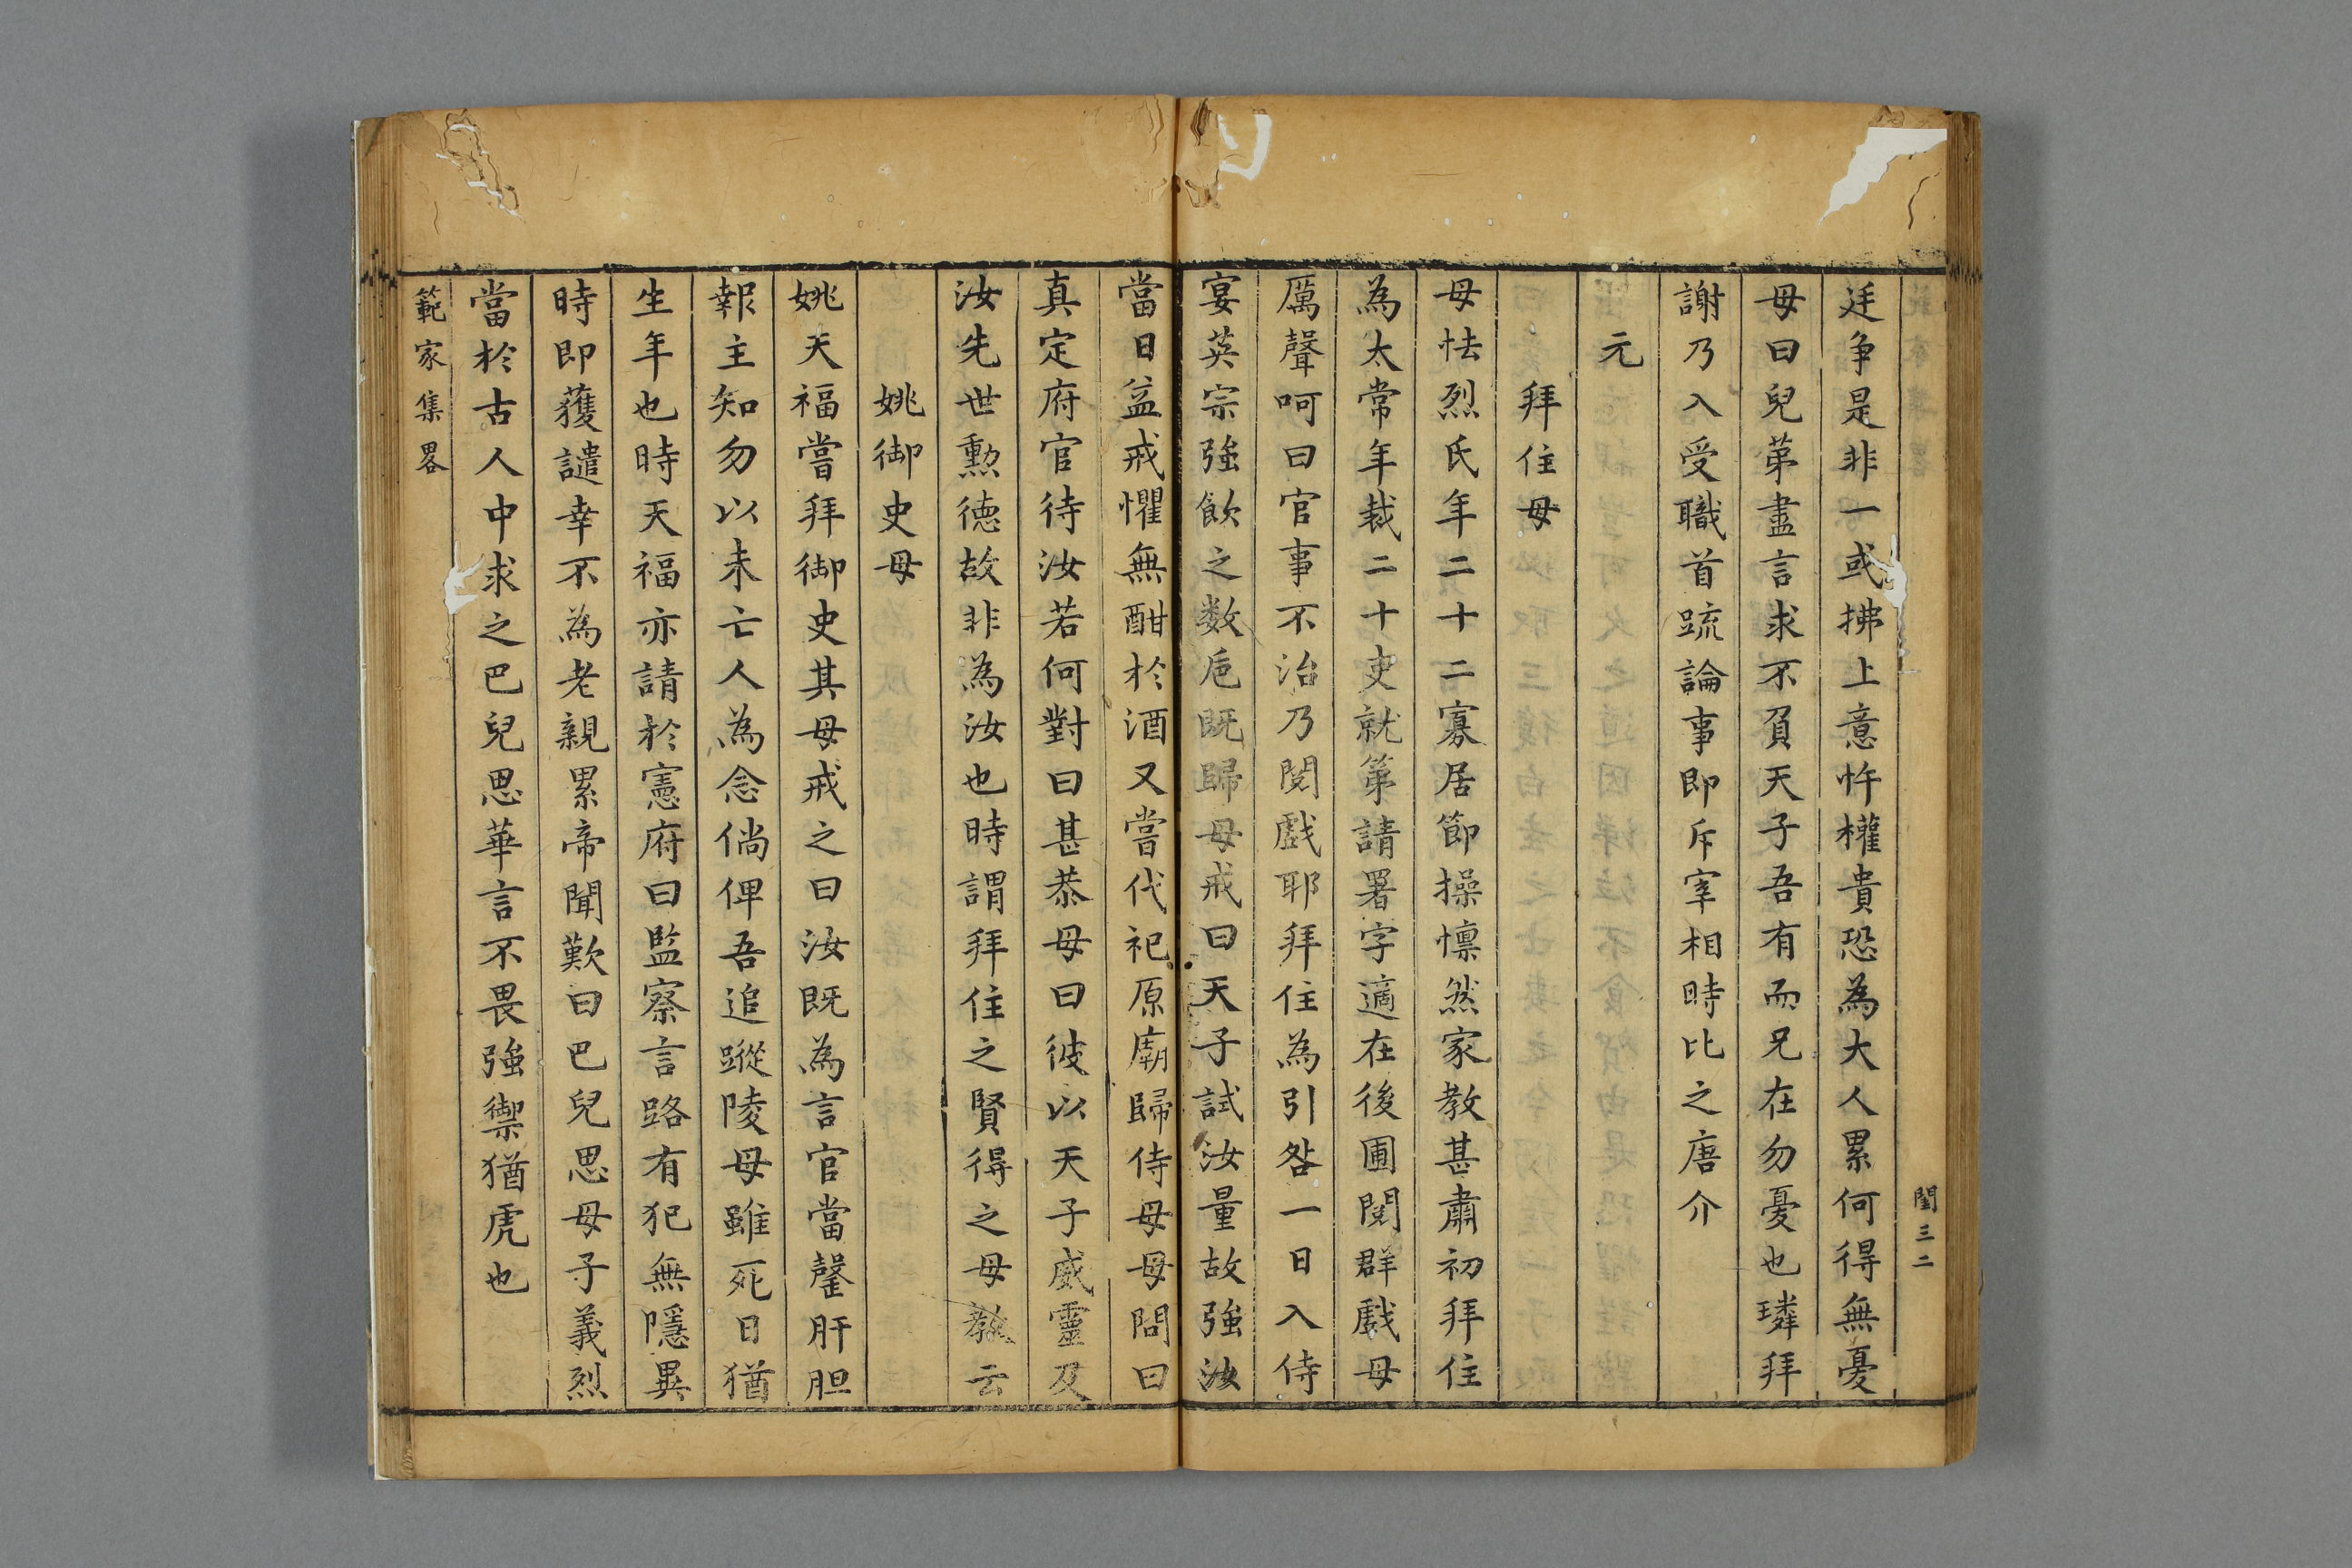 閨三二
廷争是非一或拂上意忤權貴恐為大人累何得無憂
母曰兒苐盡言求不負天子吾有而兄在勿憂也璘拜
謝乃入受職首疏論事即斥宰相時比之唐介
元
拜住母
母怯烈氏年二十二寡居節操懔然家教甚肅初拜住
為太常年裁二十吏就第請署字適在後圃閱群戲母
厲聲呵曰官事不治乃閱戲耶拜住為引咎一日入侍
宴英宗強飲之数巵既歸母戒曰天子試汝量故強汝
當日益戒懼無酣於酒又嘗代祀原廟歸侍母母問曰
真定府官待汝若何對曰甚恭母曰彼以天子威靈及
汝先世勲德故非為汝也時謂拜住之賢得之母教云
姚御史母
姚天福嘗拜御史其母戒之曰汝既為言官當罄肝胆
報主知勿以未亡人為念倘俾吾追蹤陵母雖死日猶
生年也時天福亦請於憲府曰監察言路有犯無隱異
時即獲譴幸不為老親累帝聞歎曰巴兒思母子義烈
當於古人中求之巴兒思華言不畏強禦猶虎也
範家集畧